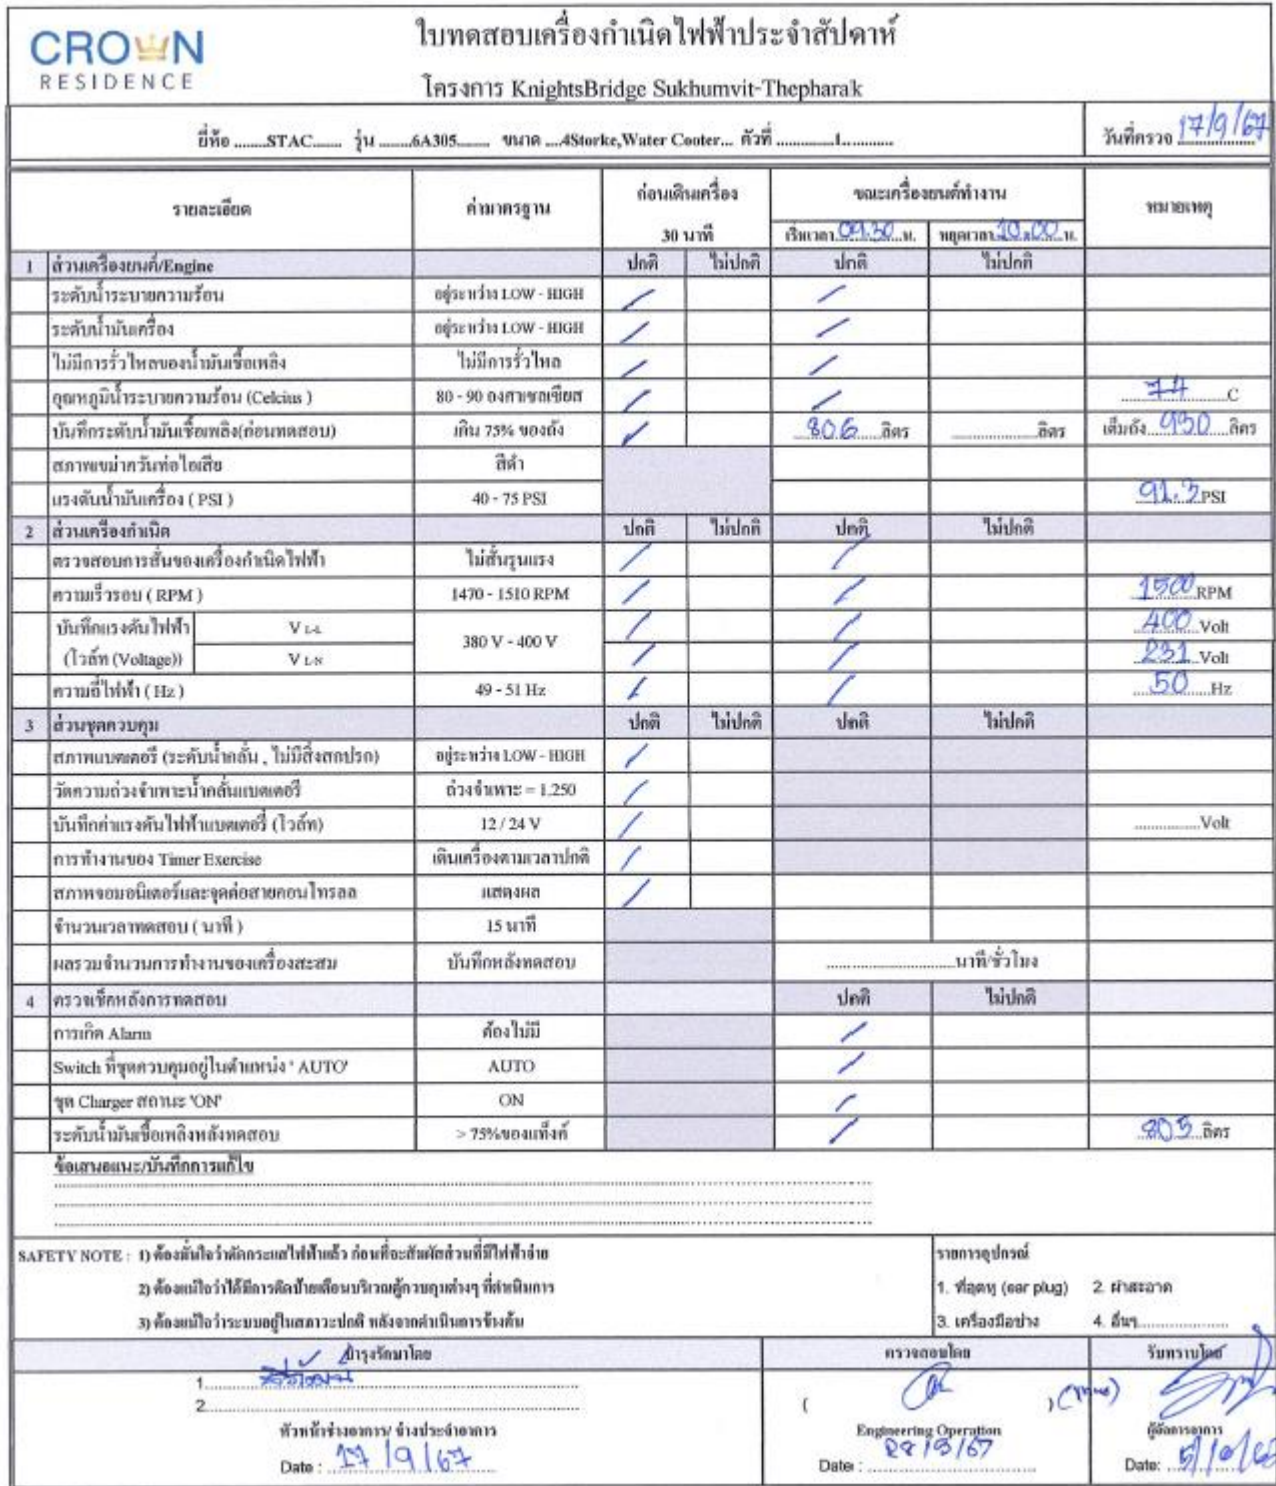 CROWN
RESIDENCE
ใบทดสอบเครื่องกำเนิดไฟฟ้าประจำสัปดาห์
โครงการ KnightsBridge Sukhumvit-Thepharak
ยี่ห้อ ........STAC........ รุ่น .........6A305......... ขนาด ....4Storke,Water Cooter... ตัวที่ ..............1............
วันที่ตรวจ 17/9/67
รายละเอียด ค่ามาตรฐาน ก่อนเดินเครื่อง 30 นาที ขณะเครื่องยนต์ทำงาน หมายเหตุ
เริ่มเวลา 09.30 น. หยุดเวลา 10.00 น.
1 ส่วนเครื่องยนต์/Engine ปกติ ไม่ปกติ ปกติ ไม่ปกติ
ระดับน้ำระบายความร้อน อยู่ระหว่าง LOW - HIGH
ระดับน้ำมันเครื่อง อยู่ระหว่าง LOW - HIGH
ไม่มีการรั่วไหลของน้ำมันเชื้อเพลิง ไม่มีการรั่วไหล
อุณหภูมิน้ำระบายความร้อน (Celcius ) 80 - 90 องศาเซลเซียส 74 C
บันทึกระดับน้ำมันเชื้อเพลิง(ก่อนทดสอบ) เกิน 75% ของถัง 806 ลิตร ................ลิตร เต็มถัง 930 ลิตร
สภาพเขม่าควันท่อไอเสีย สีดำ
แรงดันน้ำมันเครื่อง ( PSI ) 40 - 75 PSI 91.3 PSI
2 ส่วนเครื่องกำเนิด ปกติ ไม่ปกติ ปกติ ไม่ปกติ
ตรวจสอบการสั่นของเครื่องกำเนิดไฟฟ้า ไม่สั่นรุนแรง
ความเร็วรอบ ( RPM ) 1470 - 1510 RPM 1500 RPM
บันทึกแรงดันไฟฟ้า V L-L 380 V - 400 V 400 Volt
(โวล์ท (Voltage)) V L-N 231 Volt
ความถี่ไฟฟ้า ( Hz ) 49 - 51 Hz 50 Hz
3 ส่วนชุดควบคุม ปกติ ไม่ปกติ ปกติ ไม่ปกติ
สภาพแบตเตอรี่ (ระดับน้ำกลั่น , ไม่มีสิ่งสกปรก) อยู่ระหว่าง LOW - HIGH
วัดความถ่วงจำเพาะน้ำกลั่นแบตเตอรี่ ถ่วงจำเพาะ = 1.250
บันทึกค่าแรงดันไฟฟ้าแบตเตอรี่ (โวล์ท) 12 / 24 V .............Volt
การทำงานของ Timer Exercise เดินเครื่องตามเวลาปกติ
สภาพจอมอนิเตอร์และจุดต่อสายคอนโทรลล แสดงผล
จำนวนเวลาทดสอบ ( นาที ) 15 นาที
ผลรวมจำนวนการทำงานของเครื่องสะสม บันทึกหลังทดสอบ ..........................นาที/ชั่วโมง
4 ตรวจเช็คหลังการทดสอบ ปกติ ไม่ปกติ
การเกิด Alarm ต้องไม่มี
Switch ที่ชุดควบคุมอยู่ในตำแหน่ง ' AUTO' AUTO
ชุด Charger สถานะ 'ON' ON
ระดับน้ำมันเชื้อเพลิงหลังทดสอบ > 75%ของแท็งก์ 803 ลิตร
ข้อเสนอแนะ/บันทึกการแก้ไข
SAFETY NOTE : 1) ต้องมั่นใจว่าตัดกระแสไฟฟ้าแล้ว ก่อนที่จะสัมผัสส่วนที่มีไฟฟ้าจ่าย
2) ต้องแน่ใจว่าได้มีการติดป้ายเตือนบริเวณตู้ควบคุมต่างๆ ที่ดำเนินการ
3) ต้องแน่ใจว่าระบบอยู่ในสภาวะปกติ หลังจากดำเนินการข้างต้น
รายการอุปกรณ์
1. ที่อุดหู (ear plug) 2. ผ้าสะอาด
3. เครื่องมือช่าง 4. อื่นๆ....................
บำรุงรักษาโดย ตรวจสอบโดย รับทราบโดย
1.
2.
( )
หัวหน้าช่างอาคาร/ ช่างประจำอาคาร Engineering Operation ผู้จัดการอาคาร
Date : 17/9/67 Date : Date: